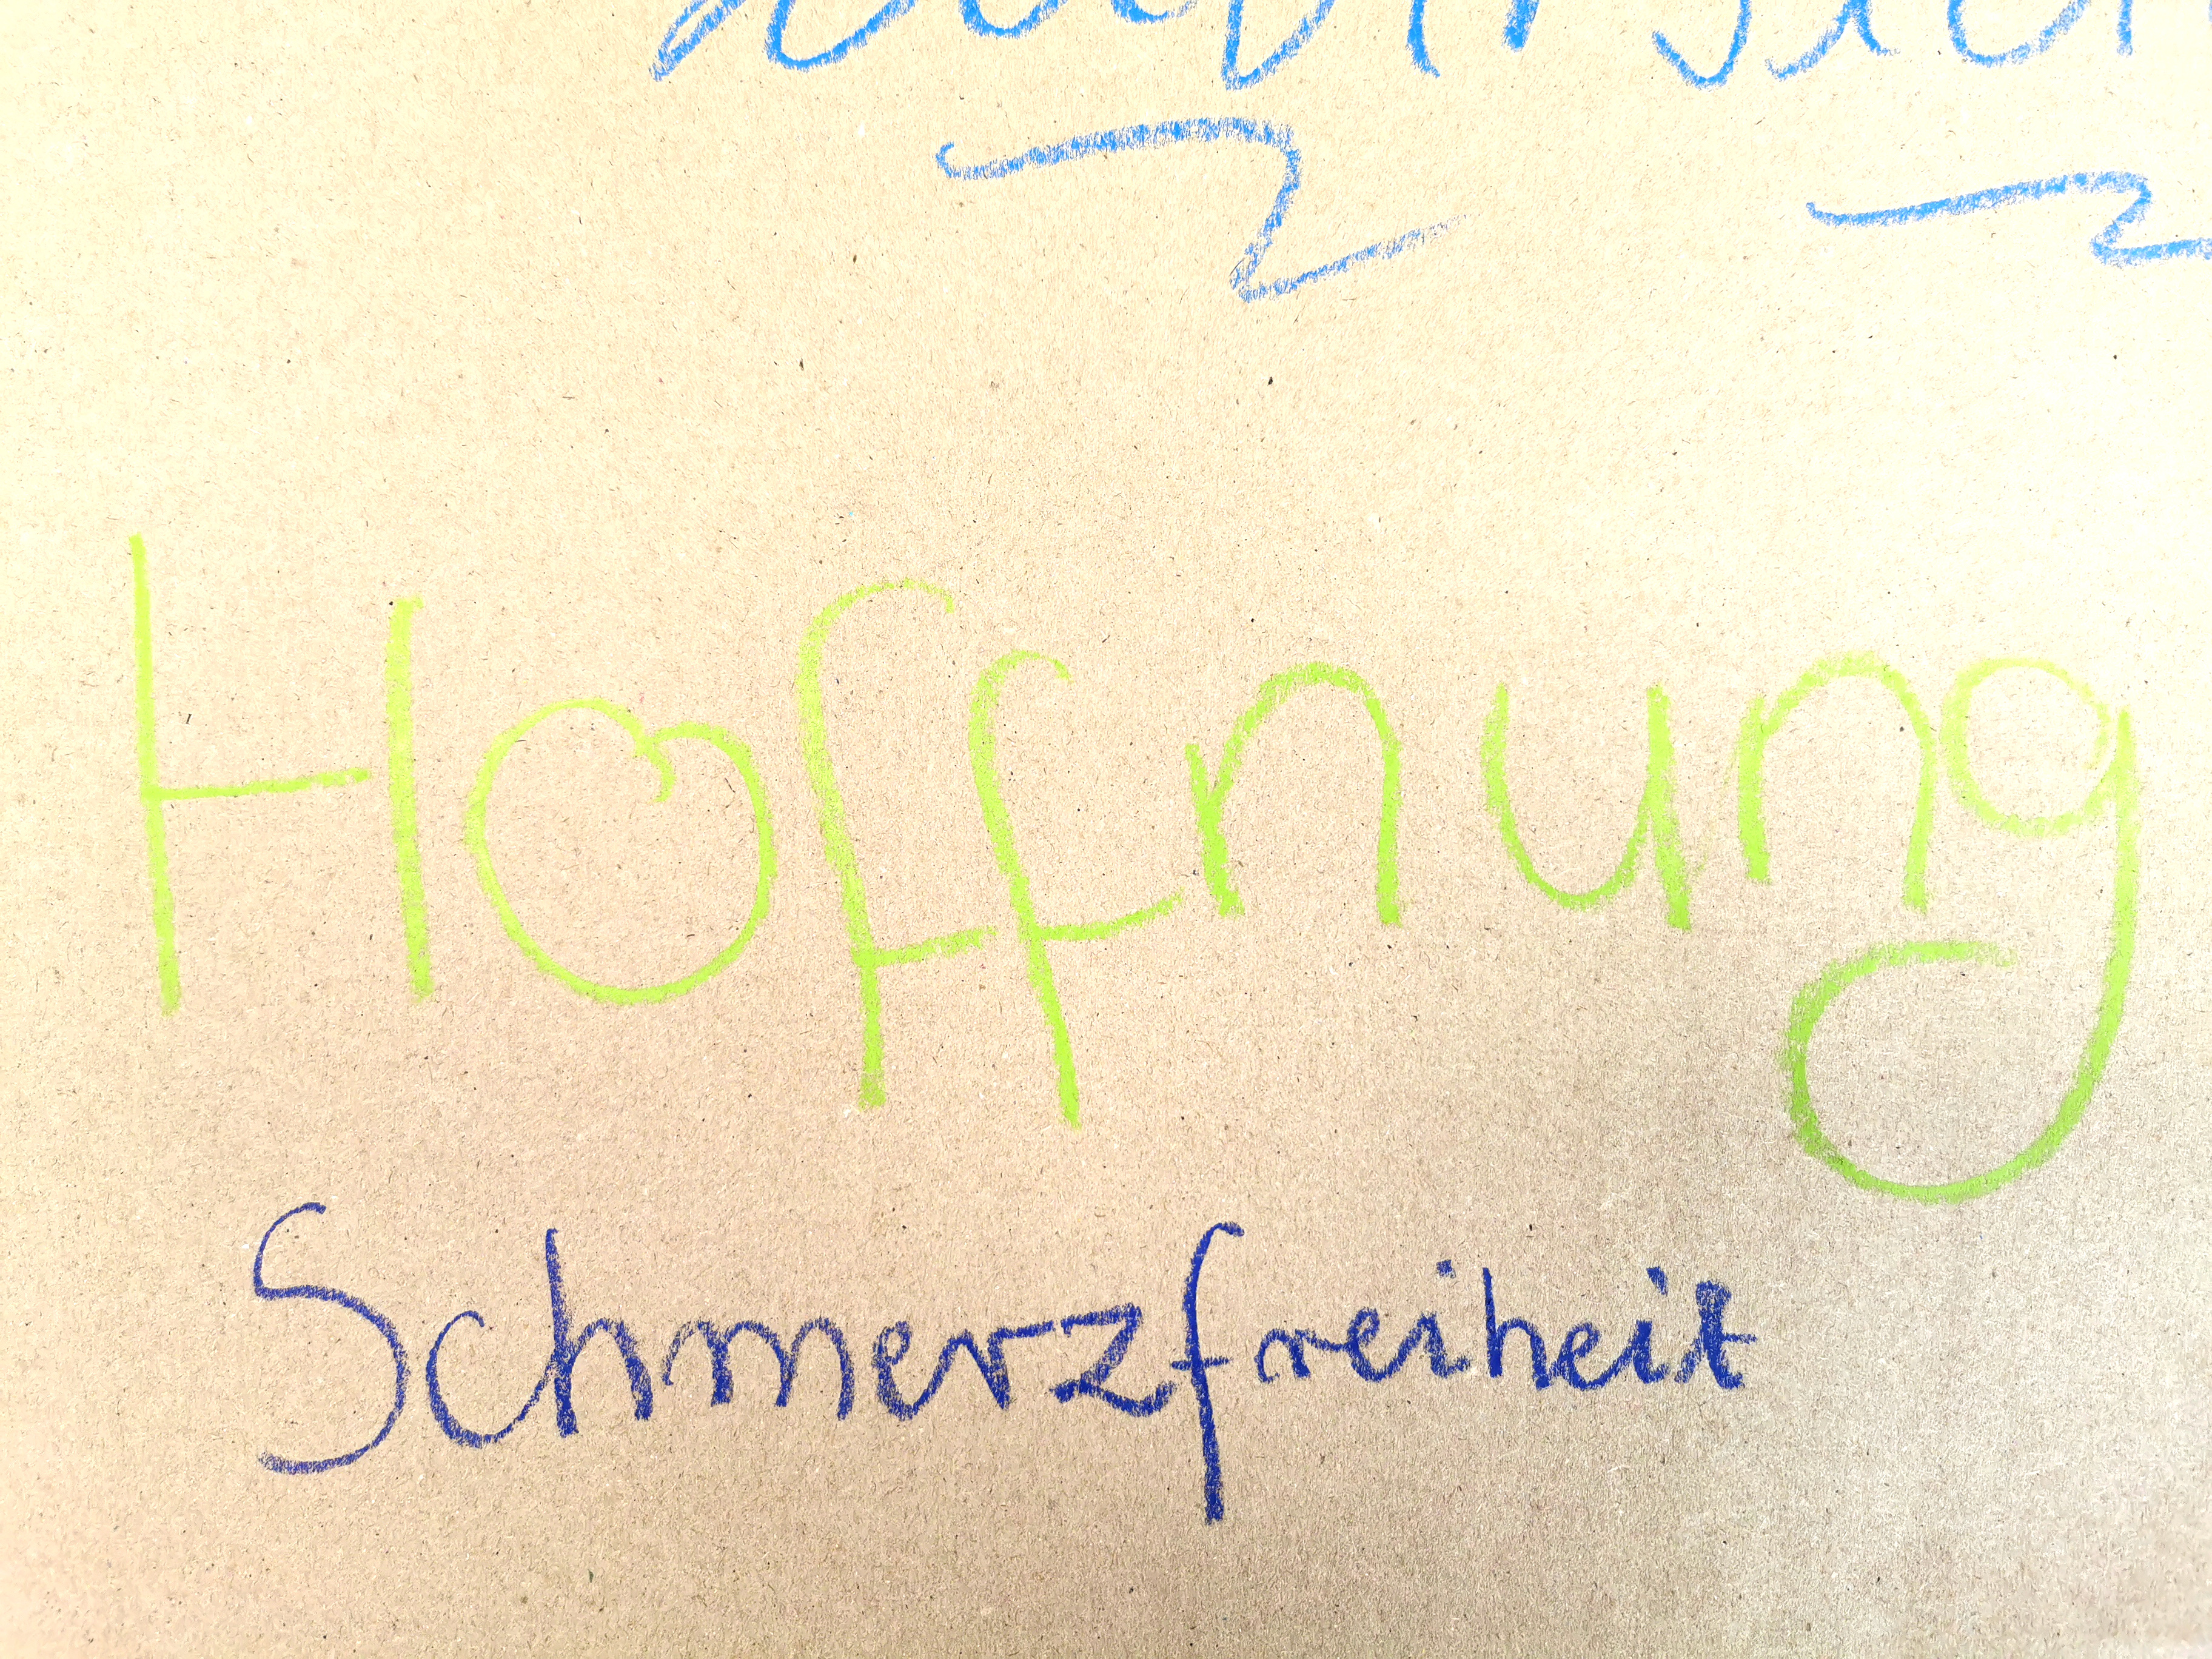 Hoffnung
Schmerzfreiheit